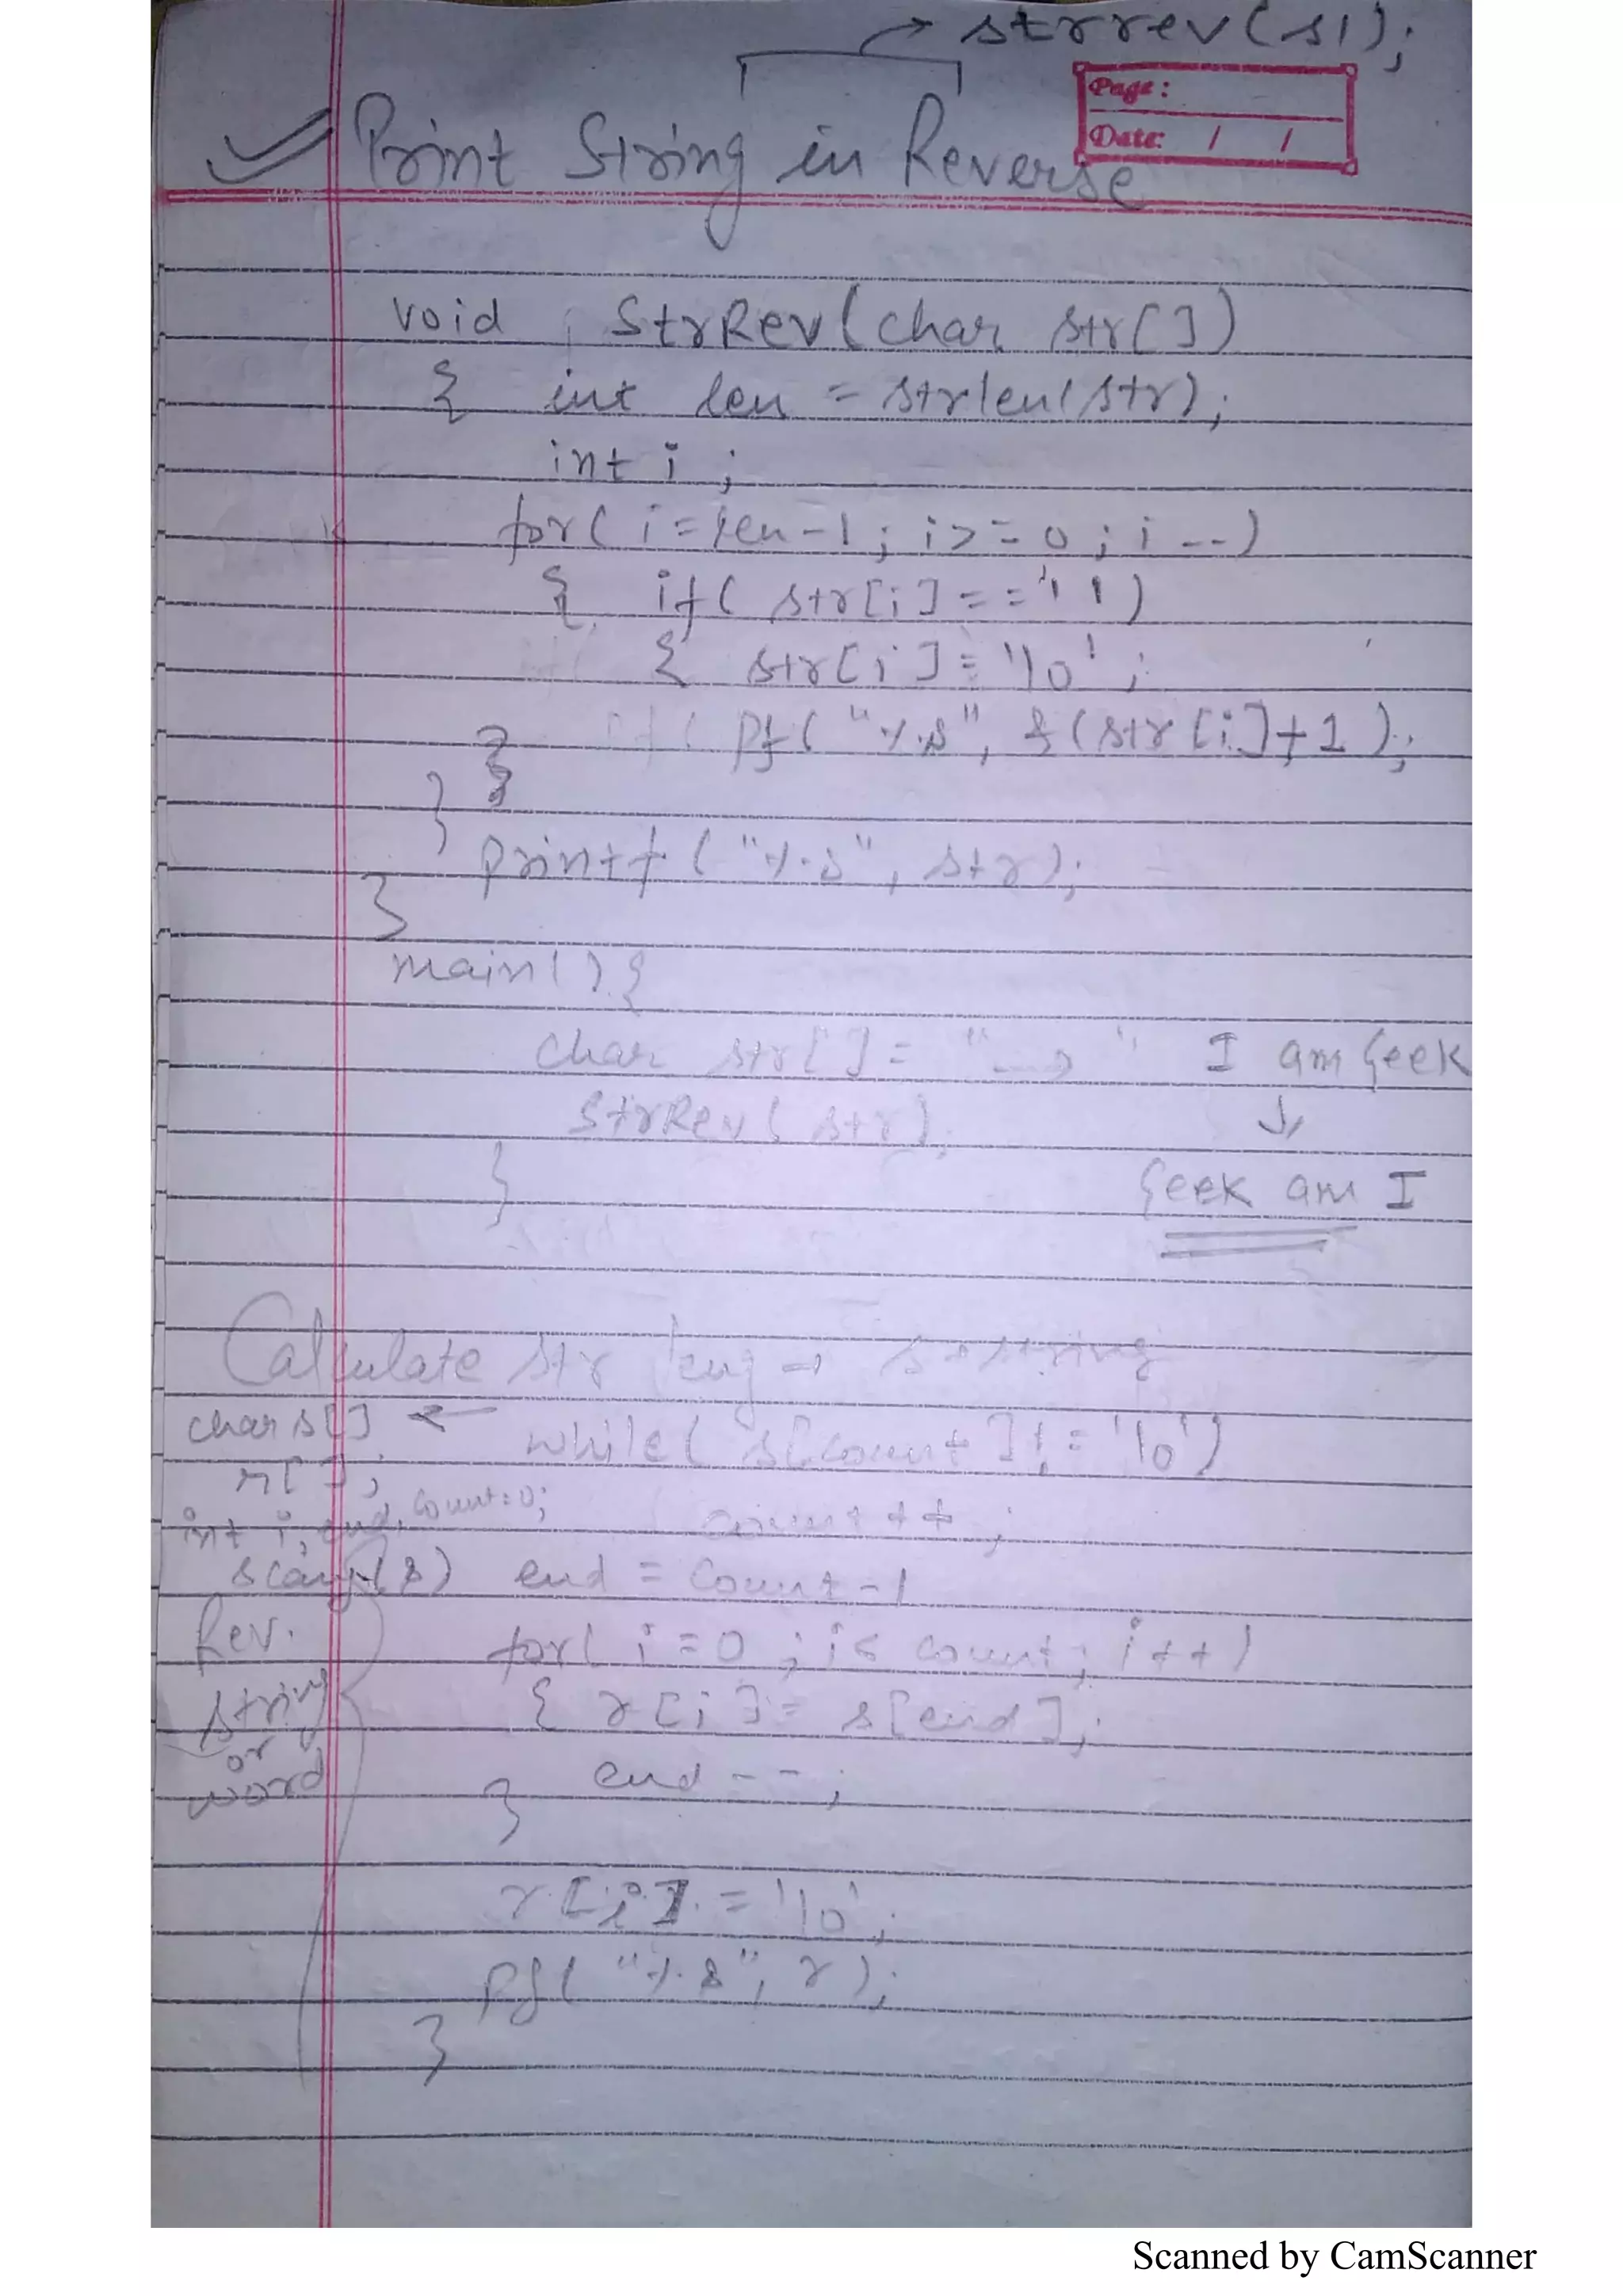 strrev(s1);
Page:
Date: / /
Print String in Reverse
void StrRev(char str[])
{ int len = strlen(str);
int i ;
for( i=len-1; i>=0; i--)
{ if( str[i]==' ')
{ str[i]='\0' ;
pf( "%s", &(str[i]+1 );
}
}
}
printf ( "%s", str);
}
main(){
char str[ ]= " " I am Geek
StrRev( str) ↓
} Geek am I
Calculate str leng →
char s[] ← while( s[count]!='\0')
r[ ];
int i, end, count=0; count++ ;
scanf(s) end = count-1
Rev. for( i=0 ; i< count; i++)
string { r[i]= s[end];
or
word end--;
}
r[i] = '\0';
pf( "%s", r);
}
Scanned by CamScanner